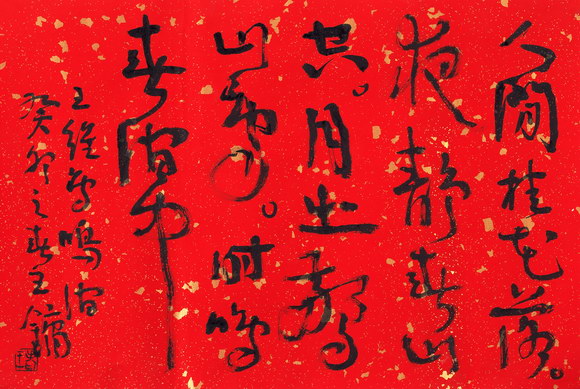 人閒桂花落。
夜靜春山
空。月出驚
山鳥。時鳴
春澗中
王維鳥鳴澗
癸卯之春王鏞